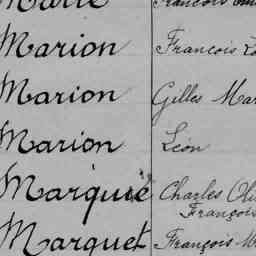 Marion François
Marion Gilles Mar
Marion Léon
Marquié Charles Oli
François
Marquet François M